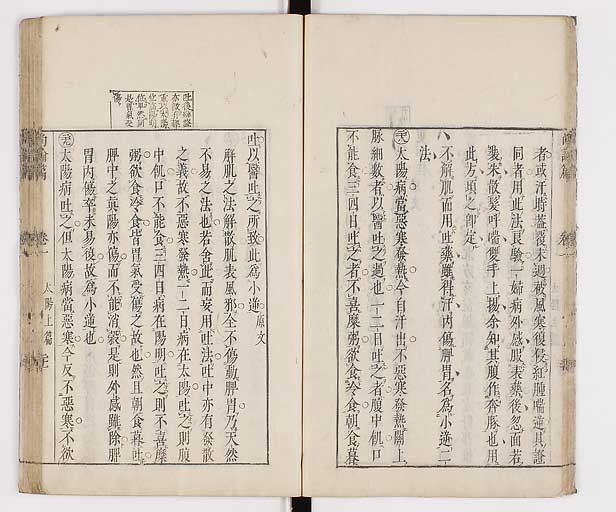 者或汗時蓋覆未週被風寒復侵紅腫喘逆其證
同者用此法良驗一婦病外感服表藥後忽面若
裝朱散髮呼喘雙手上揚余知其腹作奔豚也用
此方頃之卽定
不解肌而用吐藥雖得汗內傷脾胃名爲小逆二
法
太陽病當惡寒發熱今自汗出不惡寒發熱關上
脉細數者以醫吐之過也一二日吐之者腹中飢口
不能食三四日吐之者不喜糜粥欲食冷食朝食暮
吐以醫吐之所致此爲小逆原文
解肌之法解散肌表風邪全不傷動脾胃乃天然
不易之法也若舍此而妄用吐法吐中亦有發散
之義故不惡寒發熱一二日病在太陽吐之則腹
中飢口不能食三四日病在陽明吐之則不喜糜
粥欲食冷食皆胃氣受傷之故也然且朝食暮吐
脾中之眞陽亦傷而不能消穀是則外感雖除脾
胃內傷卒未易復故爲小逆也
太陽病吐之但太陽病當惡寒今反不惡寒不欲
卷一
太陽上篇